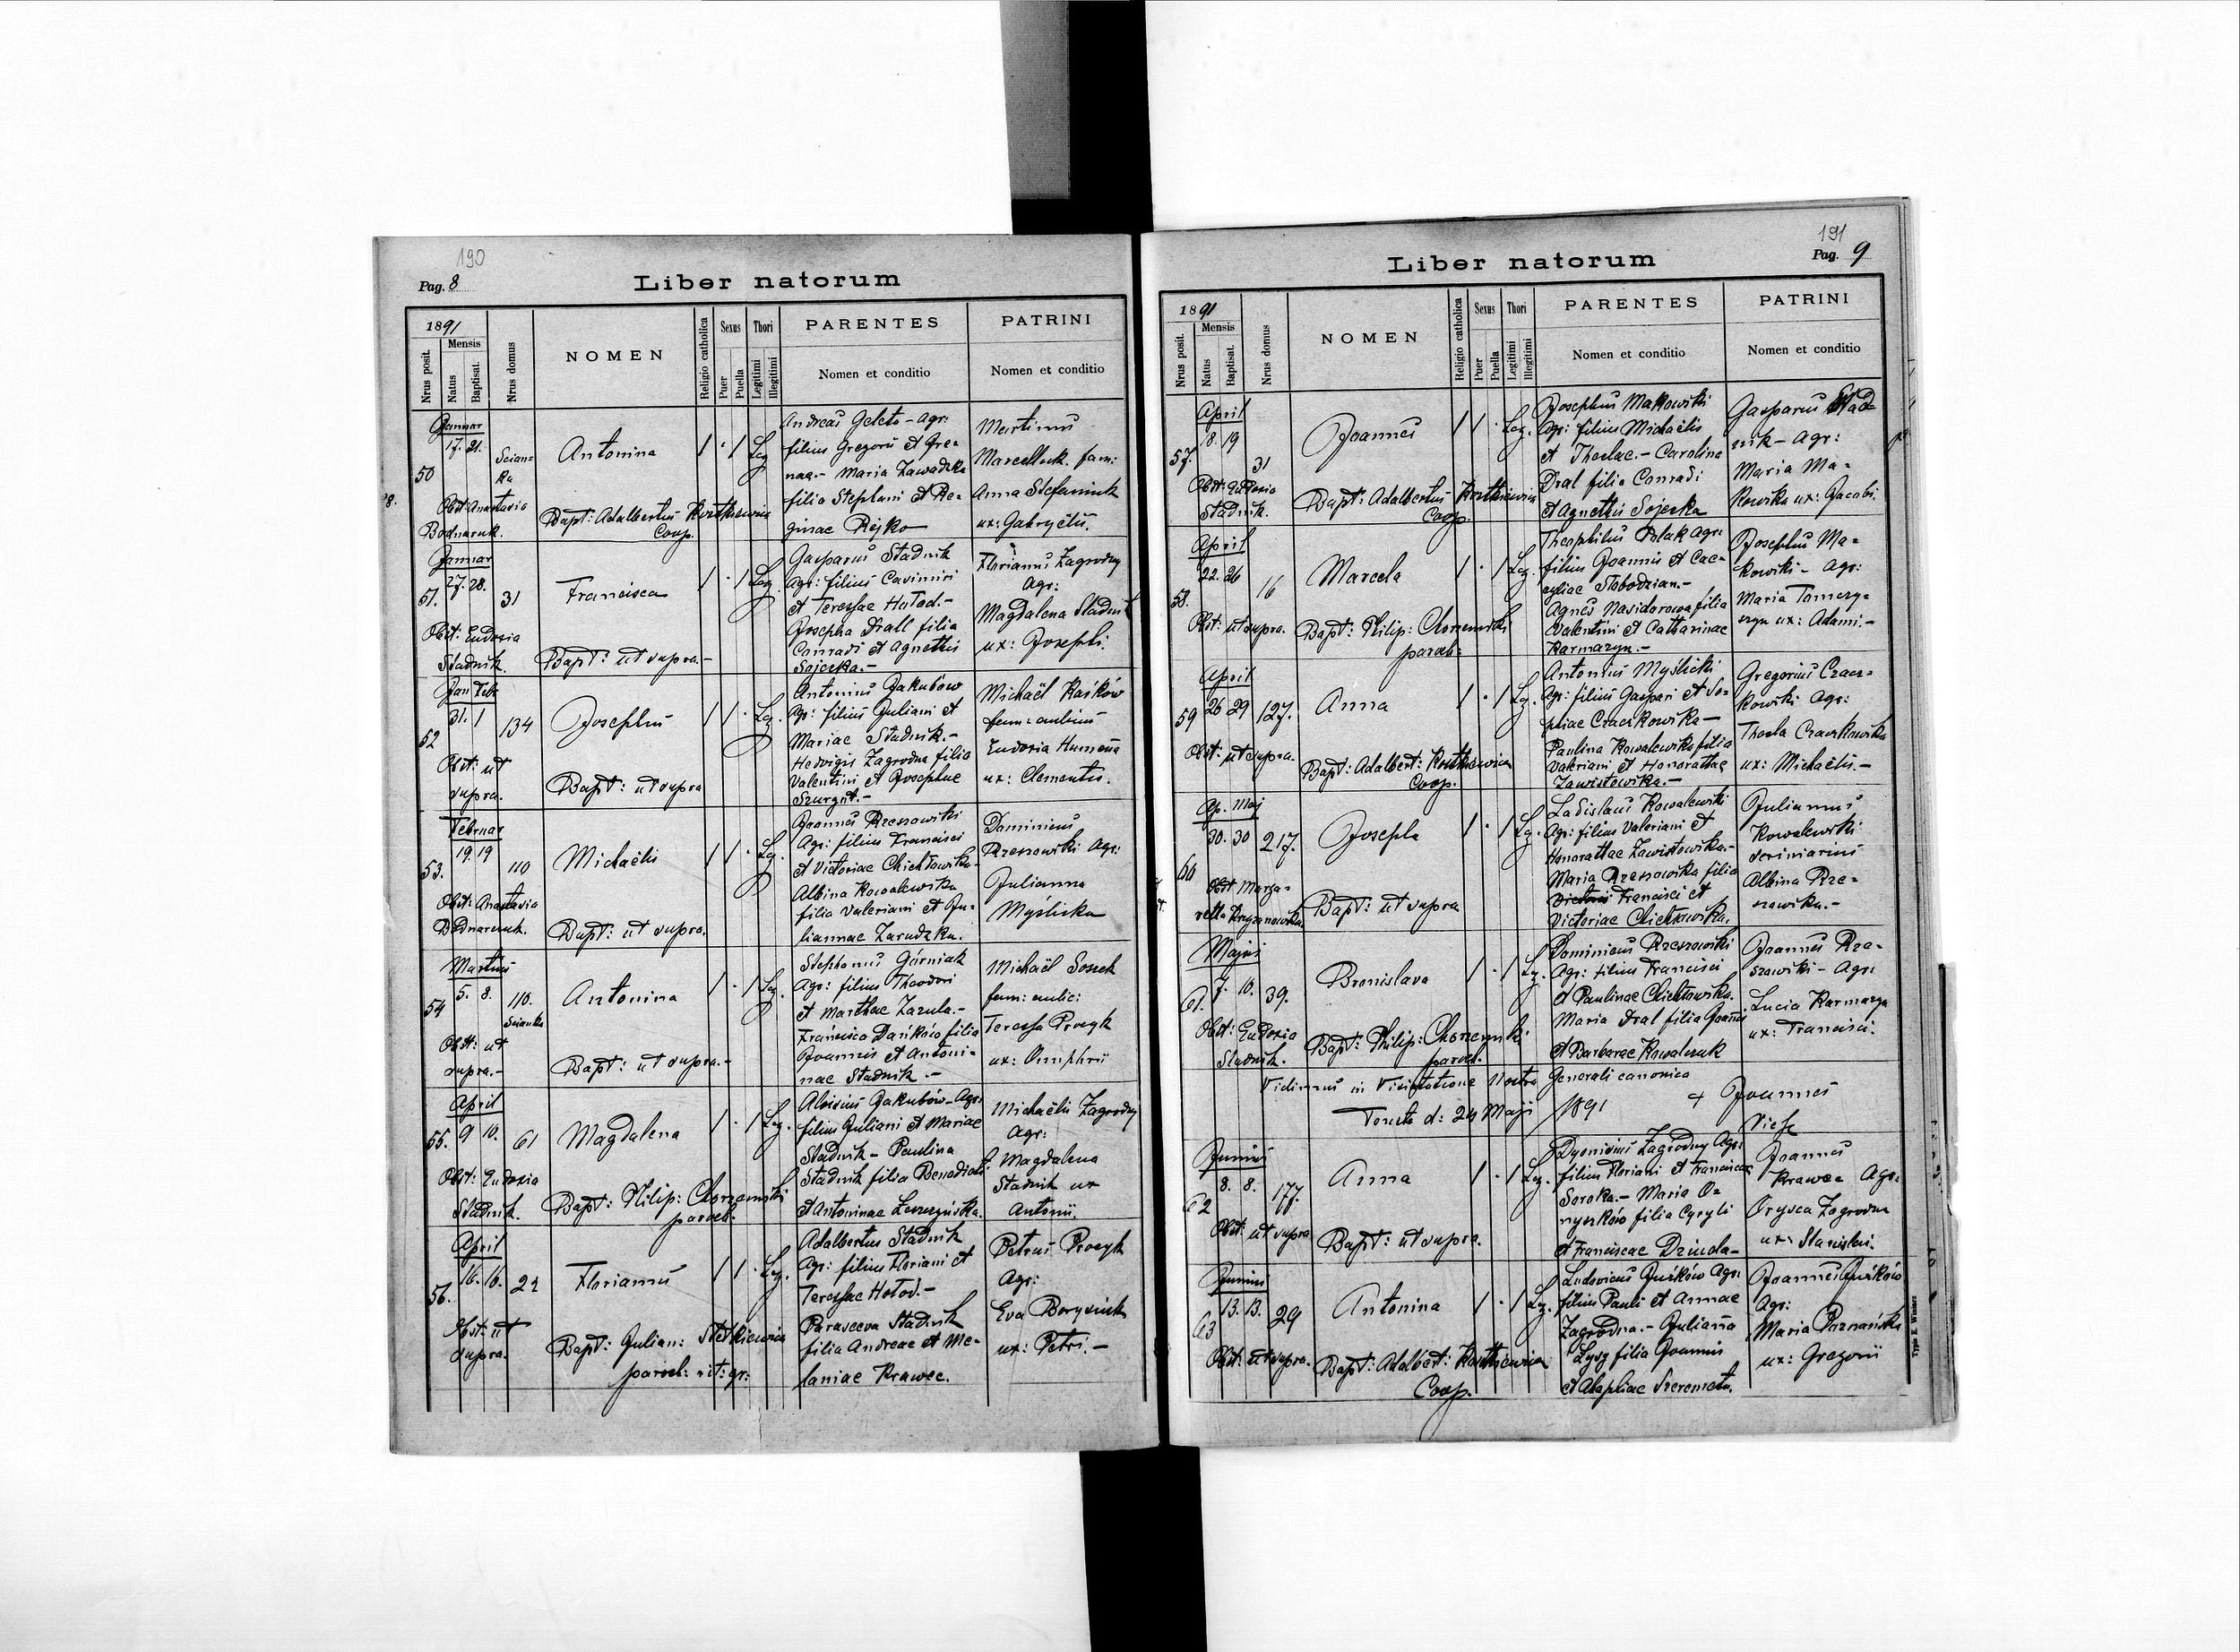 190
Pag. 8
Liber natorum
1891
Nrus posit.
Mensis
Natus
Baptisat.
Nrus domus
NOMEN
Religio catholica
Sexus
Puer
Puella
Thori
Legitimi
Illegitimi
PARENTES
Nomen et conditio
PATRINI
Nomen et conditio
50
Januar
17. 21.
Scian-
ka
Obst: Anastasia
Bodnaruk.
Antonina
Bapt: Adalbertus Kostkiewicz
Coop.
1 · 1 Leg
Andreas Geleta - Agr:
filius Gregorii et Ire-
nae.- Maria Zawadzka
filia Stephani et Re-
ginae Rejko
Martinus
Marcelluk. fam:
Anna Stefaniuk
ux: Gabryelis.
51.
Januar
27. 28.
31
Obst: Eudoxia
Stadnik.
Francisca
Bapt: ut supra.-
1 · 1 Leg
Gasparus Stadnik
Agr: filius Casimiri
et Teressae Hołod.-
Josepha Drall filia
Conradi et Agnethis
Sojecka.-
Florianus Zagrodny
Agr:
Magdalena Stadnik
ux: Josephi.
52
Jan Feb
31. 1
134
Obst: ut
supra.
Josephus
Bapt: ut supra
1 1 · Leg.
Antonius Jakubów
Agr: filius Juliani et
Mariae Stadnik.-
Hedvigis Zagrodna filia
Valentini et Josephae
Szurgot.-
Michaël Kaśków
fam: aulicus
Eudoxia Humena
ux: Clementis.
53.
Februar
19. 19
110
Obst: Anastasia
Bodnarcuk.
Michaëlis
Bapt: ut supra.
1 1 · Leg.
Joannes Rzeszowski
Agr: filius Francisci
et Victoriae Chichłowska-
Albina Kowalewska
filia Valeriani et Ju-
liannae Zarudzka.
Dominicus
Rzeszowski Agr:
Julianna
Myślicka
54
Martius
5. 8.
110.
Scianka
Obst: ut
supra.-
Antonina
Bapt: ut supra.-
1 · 1 Leg.
Stephanus Górniak
Agr: filius Theodori
et Marthae Zazula.-
Francisca Dańków filia
Joannis et Antoni-
nae Stadnik.-
Michaël Sossek
fam: aulic:
Teressa Procyk
ux: Onuphrii
55.
April
9 10.
61
Obst: Eudoxia
Stadnik.
Magdalena
Bapt: Philip: Chorzemski
paroch.
1 · 1 Leg.
Aloisius Jakubów-Agr:
filius Juliani et Mariae
Stadnik - Paulina
Stadnik filia Benedicti
et Antoninae Leszczyńska.
Michaëlis Zagrodny
Agr:
Magdalena
Stadnik ux
Antonii.
56.
April
16. 16.
22
Obst: ut
supra.
Florianus
Bapt: Julian: Stetkiewicz
paroch: rit: gr:
1 1 · Leg.
Adalbertus Stadnik
Agr: filius Floriani et
Teressae Hołod.-
Parasceva Stadnik
filia Andreae et Me-
laniae Krawec.
Petrus Procyk
Agr:
Eva Borysiuk
ux: Petri.-
191
Pag. 9
Liber natorum
1891
Nrus posit.
Mensis
Natus
Baptisat.
Nrus domus
NOMEN
Religio catholica
Sexus
Puer
Puella
Thori
Legitimi
Illegitimi
PARENTES
Nomen et conditio
PATRINI
Nomen et conditio
57.
April
18. 19
31
Obst: Eudoxia
Stadnik.
Joannes
Bapt: Adalbertus Kostkiewicz
Coop.
1 1 · Leg.
Josephus Makowski
Agr: filius Michaëlis
et Theclae.- Carolina
Dral filia Conradi
et Agnethis Sojecka
Gasparus Stad-
nik - Agr:
Maria Ma-
kowska ux: Jacobi.
58.
April
22. 26
16
Obst: ut supra.
Marcela
Bapt: Philip: Chorzemski
paroch:
1 · 1 Leg.
Theophilus Polak Agr:
filius Joannis et Cae-
cyliae Słobodzian.-
Agnes Nasidorowa filia
Valentini et Catharinae
Karmazyn.-
Josephus Ma-
kowski - Agr:
Maria Tomczy-
szyn ux: Adami.-
59
April
26 29
127.
Obst: ut supra.
Anna
Bapt: Adalbert: Kostkiewicz
Coop.
1 · 1 Leg.
Antonius Myślicki
Agr: filius Gaspari et So-
phiae Czaczkowska-
Paulina Kowalewska filia
Valeriani et Honorattae
Zawistowska.-
Gregorius Czacz-
kowski Agr:
Thecla Czaczkowska
ux: Michaëlis.-
60
Ap. Maj
30. 30
217.
Obst: Marga-
retta Krzyzanowska.
Josepha
Bapt: ut supra
1 · 1 Leg.
Ladislaus Kowalewski
Agr: filius Valeriani et
Honorattae Zawistowska.-
Maria Rzeszowska filia
Francisci et
Victoriae Chichłowska.
Julianus
Kowalewski
scriniarius
Albina Rze-
szowska.-
61.
Majus
7. 10.
39.
Obst: Eudoxia
Stadnik.
Bronislava
Bapt: Philip: Chorzemski
paroch.
1 · 1 Leg.
Dominicus Rzeszowski
Agr: filius Francisci
et Paulinae Chichłowska.
Maria Dral filia Joannis
et Barbarae Kowalczuk
Joannes Rze-
szowski - Agr:
Lucia Karmazyn
ux: Francisci.
Vidimus in Visitatione Nostra Generali canonica
d: 24 Maji 1891 + Joannes
62
Junius
8. 8.
177.
Obst: ut supra
Anna
Bapt: ut supra.
1 · 1 Leg.
Dyonisius Zagrodny Agr:
filius Floriani et Franciscae
Soroka.- Maria O-
nyszków filia Cyryli
et Franciscae Dziuda-
Joannes
Krawec Agr.
Orysca Zagrodna
ux: Stanislai.
63
Junius
13. 13.
29
Obst: ut supra.
Antonina
Bapt: Adalbert: Kostkiewicz
Coop.
1 · 1 Leg.
Ludovicus Juśków Agr:
filius Pauli et Annae
Zagrodna.- Julianna
Łysy filia Joannis
et Agaphiae Szeremeta.
Joannes Juśków
Agr:
Maria Poznańska
ux: Gregorii
Typis E. Winiarz